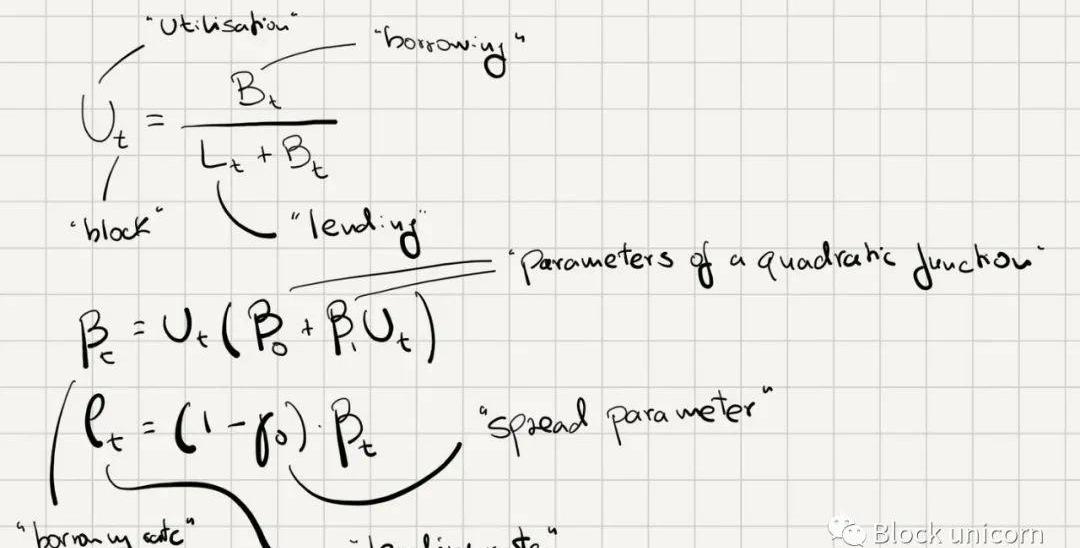 "Utilisation"
"borrowing"
U_t = B_t / (L_t + B_t)
"block"
"lending"
"parameters of a quadratic function"
β_t = U_t (β_0 + β_1 U_t)
ℓ_t = (1 - γ_0) · β_t
"spread parameter"
"borrowing rate"
Block unicorn